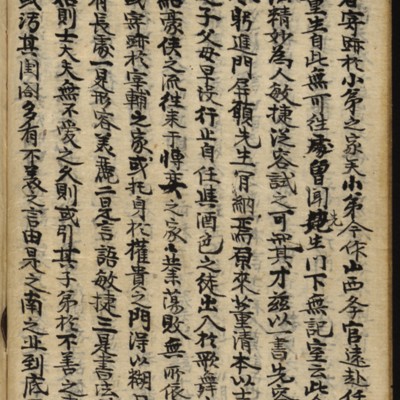 寄跡於小弟之家矣小弟今作山西參官遠赴任
董生自此無可往處曾聞先生門下無記室云此人
精妙為人敏捷從容試之可覘其才茲以一書先容
躬進門屏願先生冐納焉原來董清本以士
之子父母早沒行止自任與酒色之徒出入於歌舞
給豪俠之流往來于博奕之家基業蕩敗無所依
或寄跡於宰輔之家或托身於權貴之門得以糊
有長處一是形容美麗二是言語敏捷三是書法
始則士大夫無不愛之久則或引其子弟於不善之
或污其閨閤多有不善之言由是之南之北到底